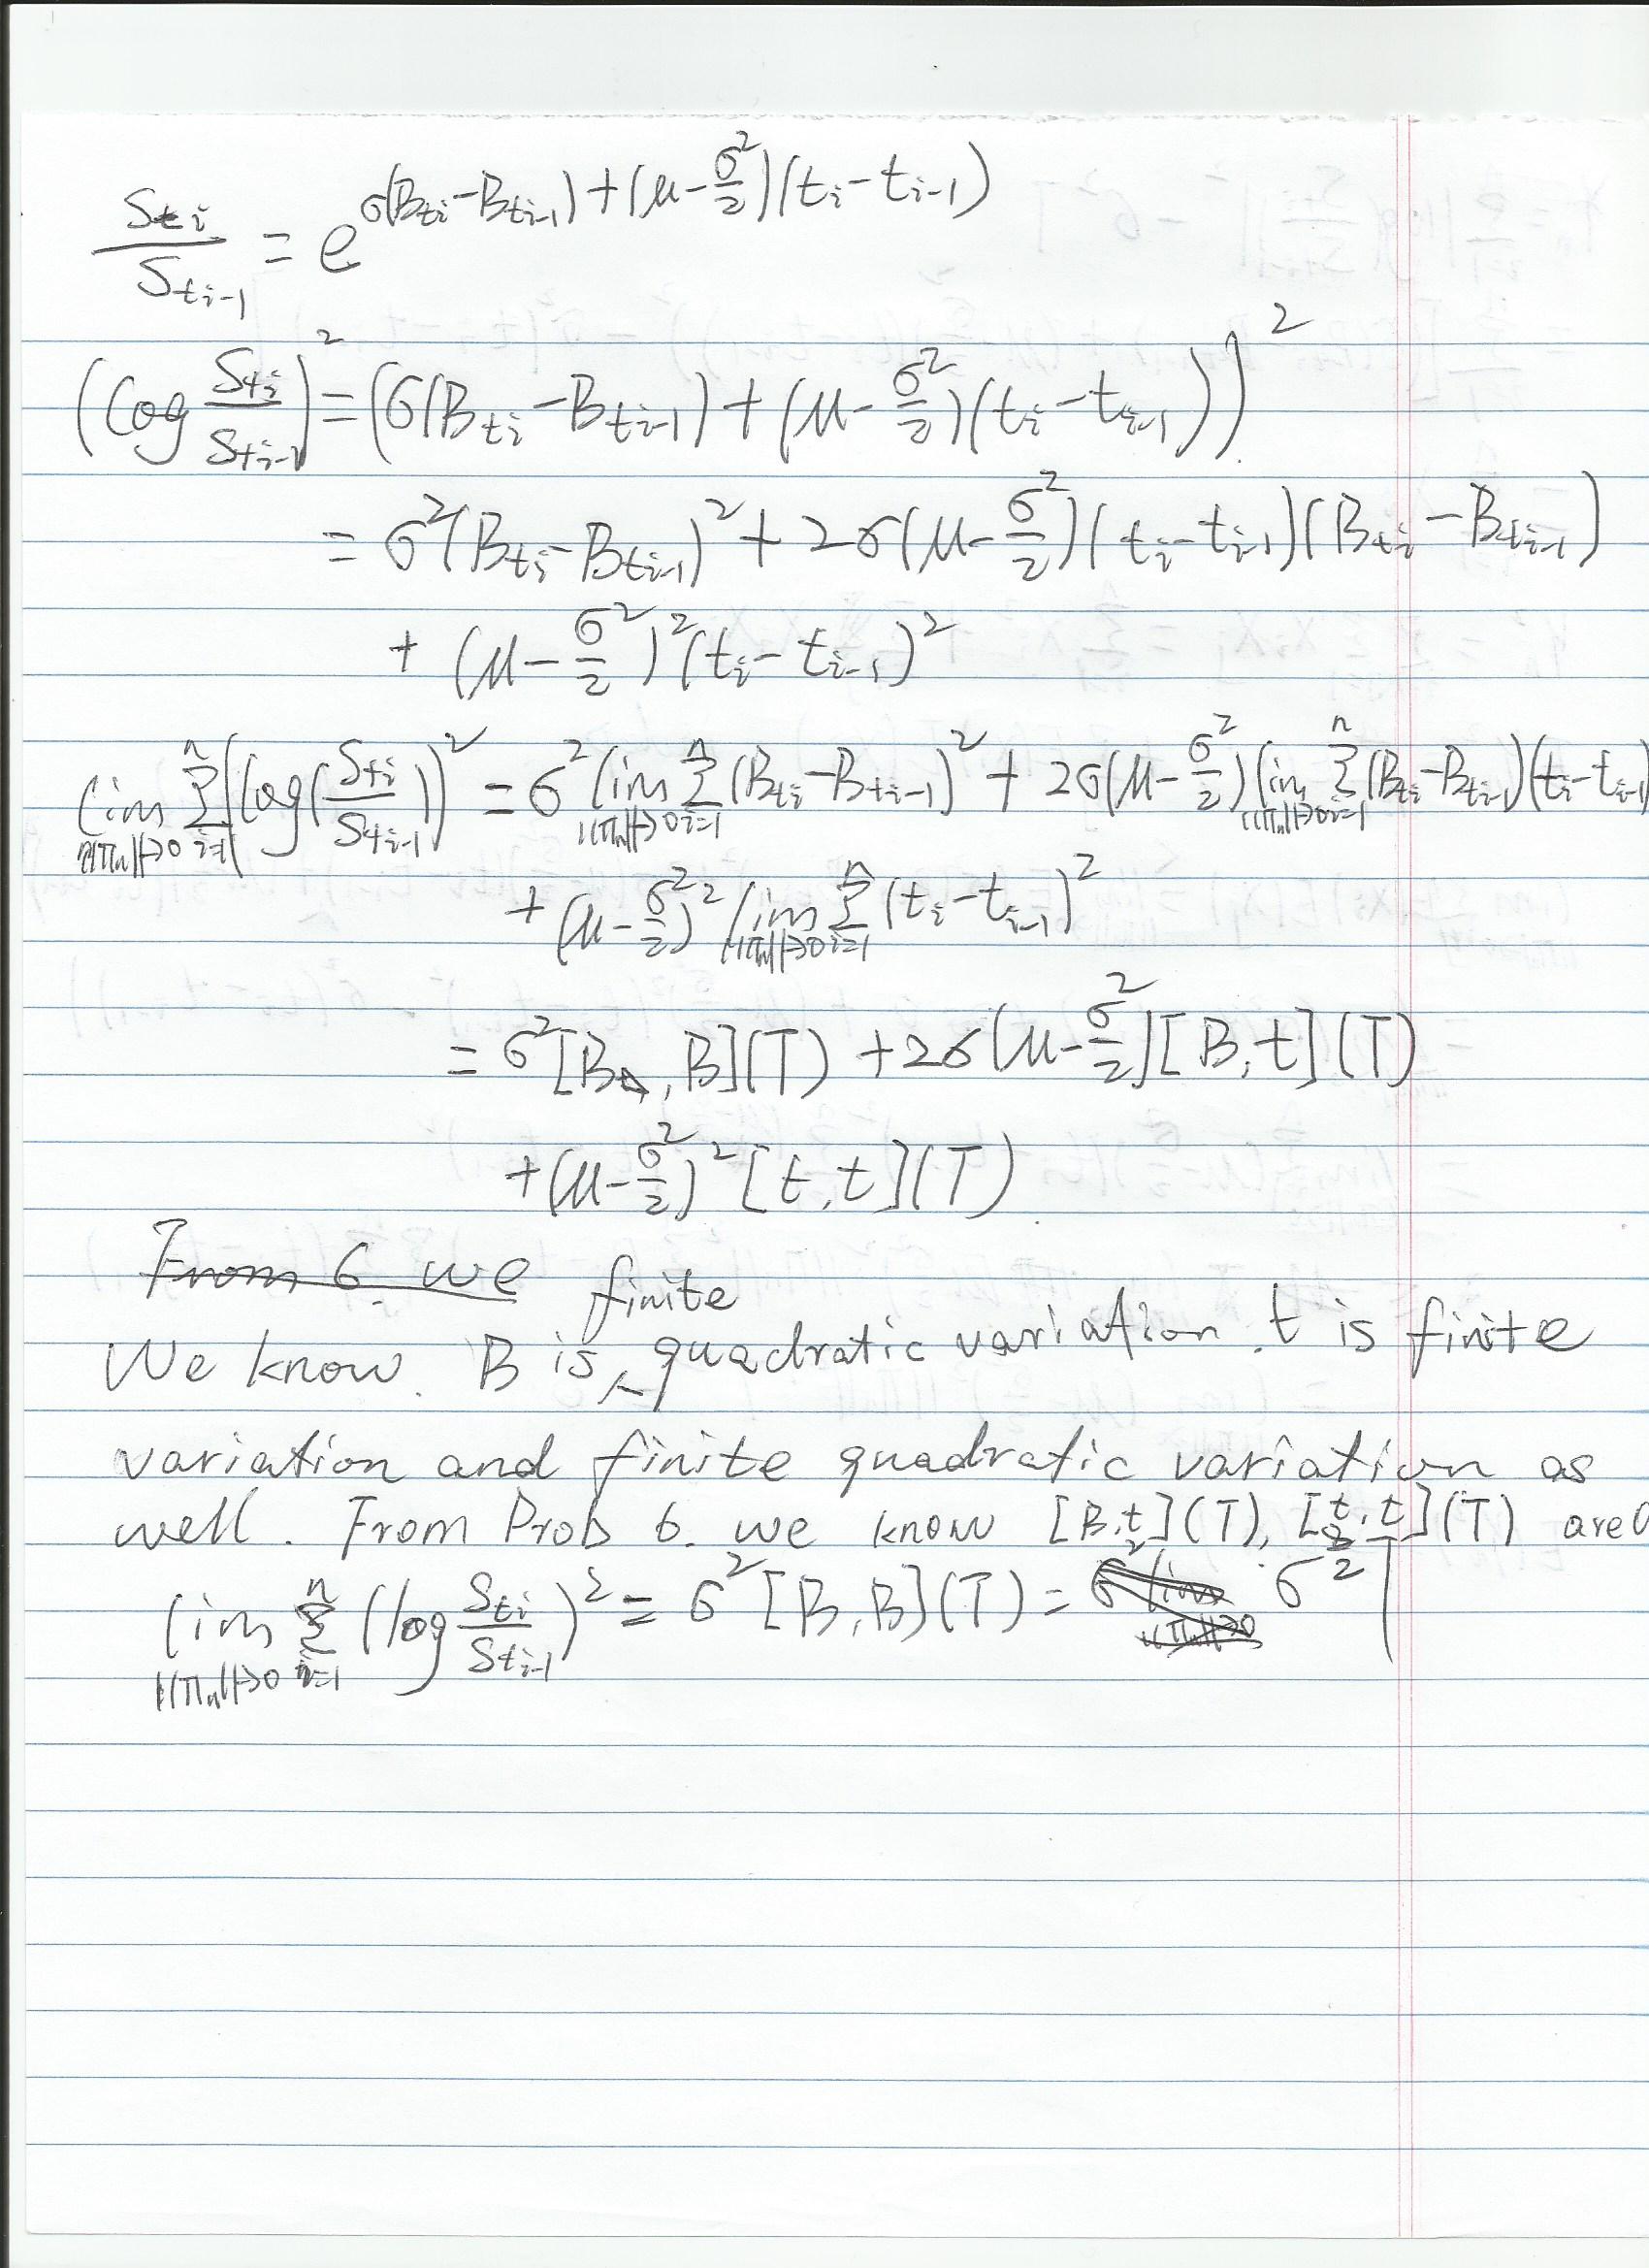 S_{t_i}/S_{t_{i-1}} = e^{σ(B_{t_i}-B_{t_{i-1}})+(μ-σ²/2)(t_i-t_{i-1})}
(log S_{t_i}/S_{t_{i-1}})² = (σ(B_{t_i}-B_{t_{i-1}})+(μ-σ²/2)(t_i-t_{i-1}))²
= σ²(B_{t_i}-B_{t_{i-1}})²+2σ(μ-σ²/2)(t_i-t_{i-1})(B_{t_i}-B_{t_{i-1}})
+(μ-σ²/2)²(t_i-t_{i-1})²
lim_{||Π_n||→0} Σ_{i=1}^{n}(log(S_{t_i}/S_{t_{i-1}}))² = σ² lim_{||Π_n||→0} Σ_{i=1}^{n}(B_{t_i}-B_{t_{i-1}})² + 2σ(μ-σ²/2) lim_{||Π_n||→0} Σ_{i=1}^{n}(B_{t_i}-B_{t_{i-1}})(t_i-t_{i-1})
+(μ-σ²/2)² lim_{||Π_n||→0} Σ_{i=1}^{n}(t_i-t_{i-1})²
= σ²[B, B](T) +2σ(μ-σ²/2)[B,t](T)
+(μ-σ²/2)²[t,t](T)
From 6. we
We know. B is finite quadratic variation. t is finite
variation and finite quadratic variation as
well. From Prob 6. we know [B,t](T), [t,t](T) are 0
lim_{||Π_n||→0} Σ_{i=1}^{n}(log S_{t_i}/S_{t_{i-1}})² = σ²[B,B](T) = σ²T